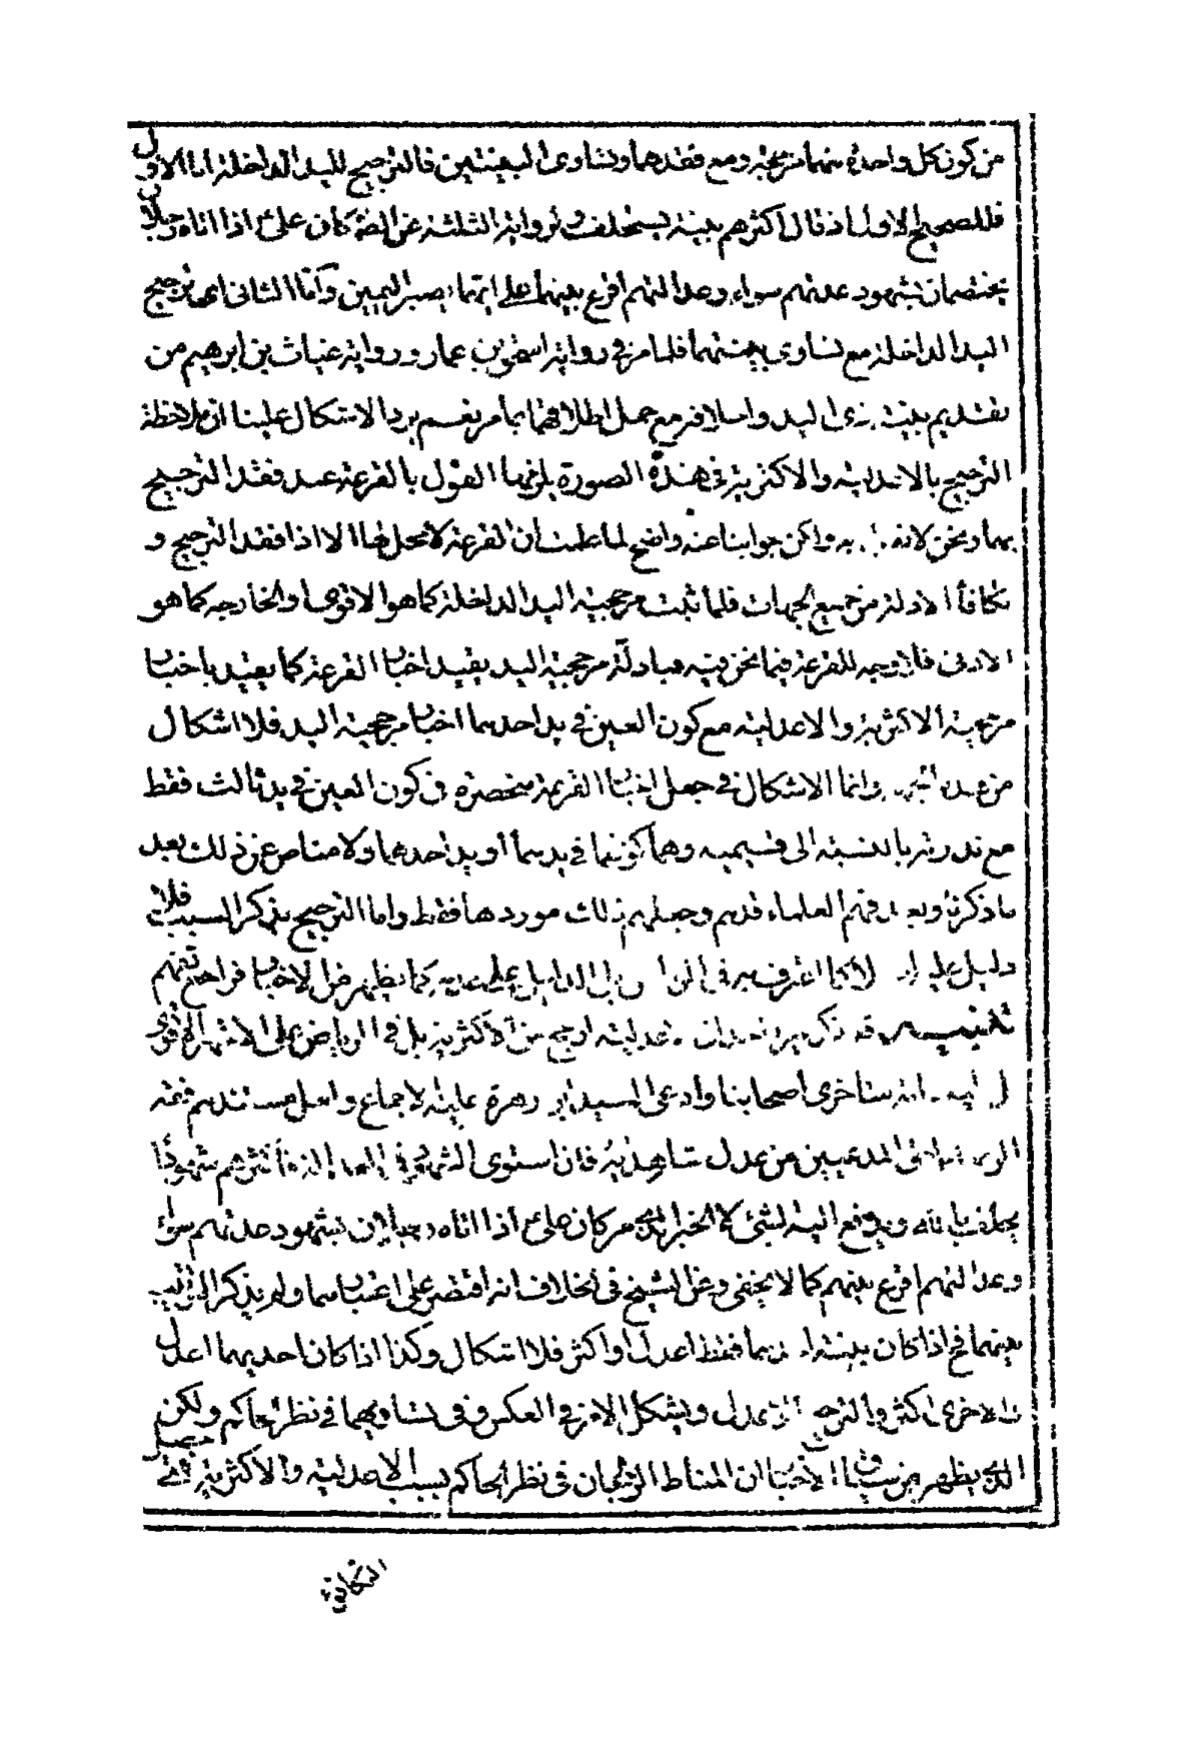 من كون كل واحدة منهما مرجحة ومع فقدهما وتساوى البينتين فالترجيح لليد الداخلة اما الاول
فللصحيح الاول اذ قال اكثرهم بينة يستحلف ولرواية الثلثة عن الصّ كان علىّ اذا اتاه رجلان
يختصمان بشهود عدلهم سواء وعدالتهم اقرع بينهما على ايهما يصير اليمين وامّا الثانى اى ترجيح
اليد الداخلة مع تساوى بينتهما فلما مر فى رواية اسحق بن عمار ورواية غياث بن ابرهيم من
تقديم بينة ذى اليد واطلاقه مع حمل اطلاقهما بما مر نعم يرد الاشكال علينا ان ملاحظة
الترجيح بالاعدلية والاكثرية فى هذه الصورة يلزمها القول بالقرعة عند فقد الترجيح
بهما ونحن لا نقول به ولكن جوابنا عنه واضح لما علمت ان القرعة لا محل لها الا اذا فقد الترجيح و
تكافأ الادلة من جميع الجهات فلما ثبت مرجحية اليد الداخلة كما هو الاقوى او الخارجه كما هو
الادنى فلا وجه للقرعة فيما نحن فيه فبادلّة مرجحية اليد يقيد اخبار القرعة كما يقيد باخبار
مرجحية الاكثرية والاعدلية مع كون العين فى يد احدهما اخبار مرجحية اليد فلا اشكال
من هذه الجهة وانما الاشكال فى جعل اخبار القرعة منحصرة فى كون العين فى يد ثالث فقط
مع ندرته بالنسبة الى قسيميه وهما كونها فى يدهما أو يد احدهما ولا مناص عن ذلك بعد
ما ذكرنا وبعد فهم العلماء قدهم وجعلهم ذلك موردها فقط واما الترجيح بذكر السبب فلا
دليل عليه كما اعترف به فى بل الدليل على عدمه كما يظهر من الاخبار فراجع تفهم
تنبيه قد ذكر اعدلية ارجح من الاكثرية بل فى الرياض على الاشهر الاقوى
متأخرى اصحابنا وادعى السيد ابن زهرة عليه الاجماع ولعل مستندهم فقه
الرضا المدعيين من عدل شاهديه فان استوى الشهود فى العدالة فأكثرهم شهودا
يحلف بالله ويدفع اليه الشئ كا الخبر كان علىّ اذا اتاه رجلان بشهود عدلهم سواء
وعدالتهم اقرع بينهم كما لا يخفى وعن الشيخ فى الخلاف انه اقتصر على اعتبارهما ولم يذكر الترتيب
بينهما فح اذا كان بينة احدهما فقط اعدل او اكثر فلا اشكال وكذا اذا كان احديهما اعدل
والاخرى اكثر فالترجيح للاعدل ويشكل الامر فى العكس وفى تساويهما فى نظر الحاكم ولكن
الذى يظهر من سياق الاخبار ان المناط الرجحان فى نظر الحاكم بسبب الاعدلية والاكثرية فمتى حصل
التكافئ